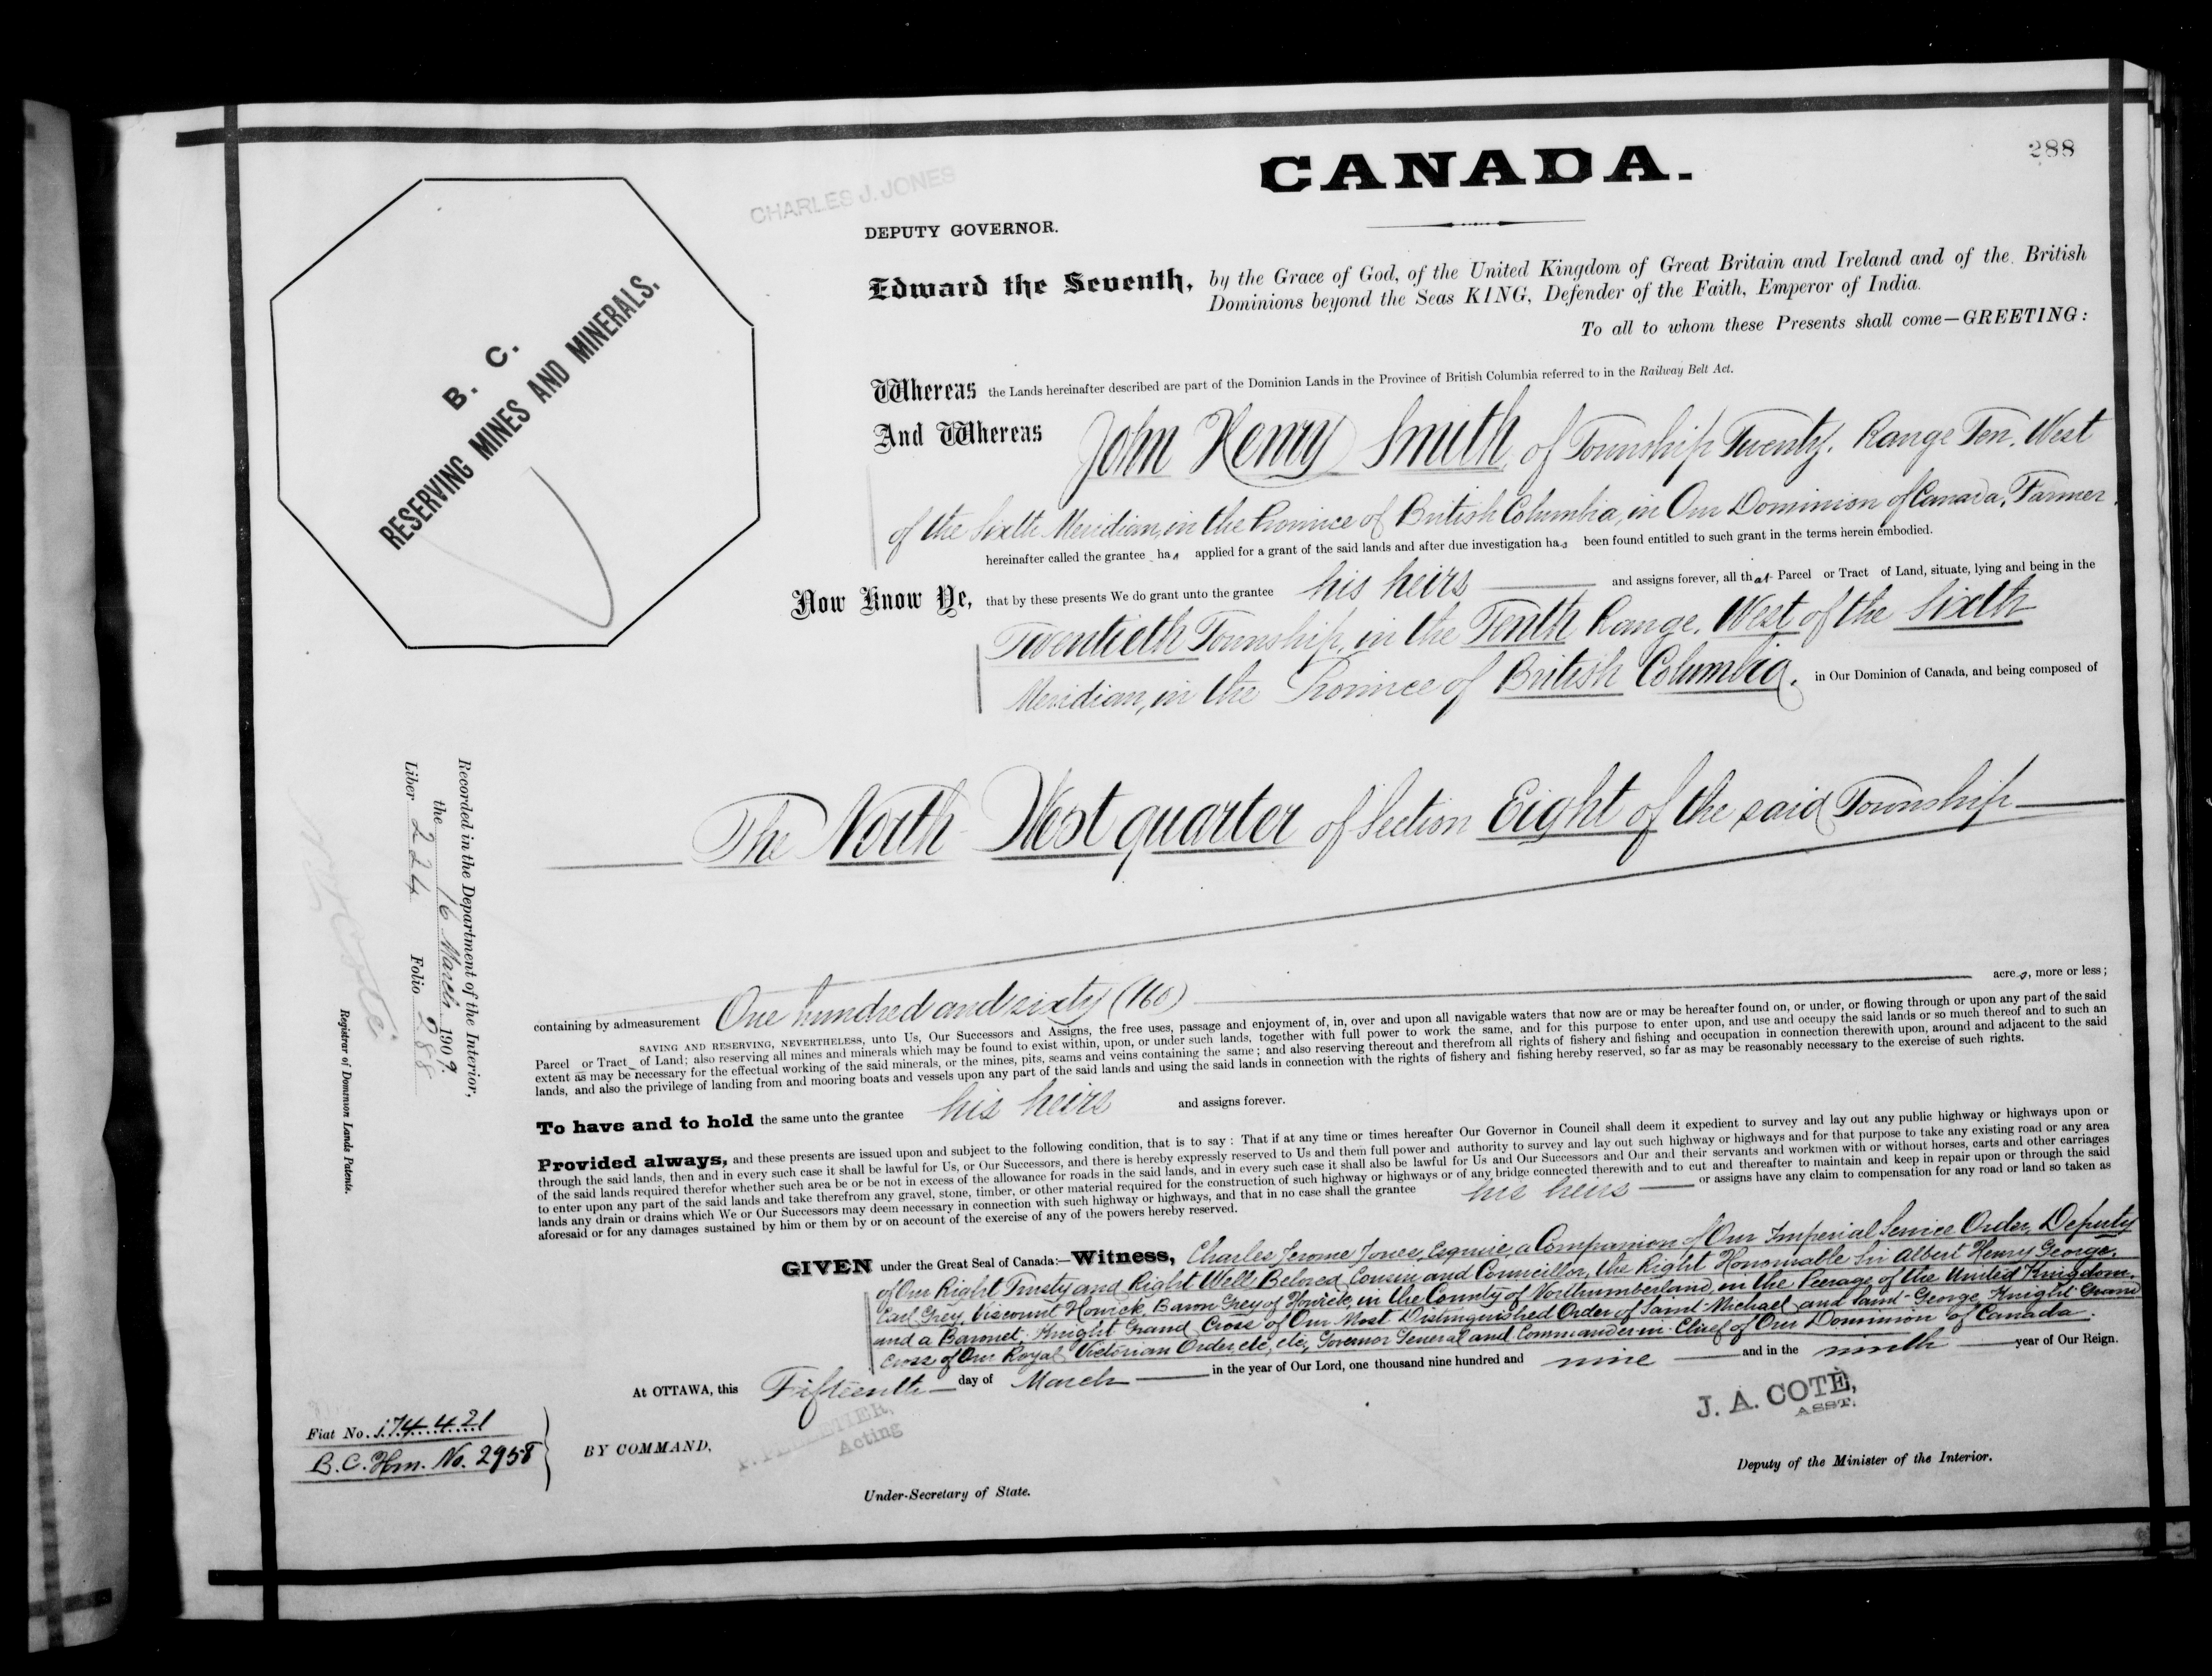 288
CANADA.
CHARLES J. JONES
DEPUTY GOVERNOR.
Edward the Seventh, by the Grace of God, of the United Kingdom of Great Britain and Ireland and of the British
Dominions beyond the Seas KING, Defender of the Faith, Emperor of India.
To all to whom these Presents shall come—GREETING:
B. C.
RESERVING MINES AND MINERALS.
Whereas the Lands hereinafter described are part of the Dominion Lands in the Province of British Columbia referred to in the Railway Belt Act.
And Whereas John Henry Smith, of Township Twenty, Range Ten, West
of the Sixth Meridian, in the Province of British Columbia, in Our Dominion of Canada, Farmer,
hereinafter called the grantee has applied for a grant of the said lands and after due investigation has been found entitled to such grant in the terms herein embodied.
Now Know Ye, that by these presents We do grant unto the grantee his heirs and assigns forever, all that Parcel or Tract of Land, situate, lying and being in the
Twentieth Township, in the Tenth Range, West of the Sixth
Meridian, in the Province of British Columbia, in Our Dominion of Canada, and being composed of
The North West quarter of Section Eight of the said Township
containing by admeasurement One hundred and sixty (160) acres, more or less;
SAVING AND RESERVING, NEVERTHELESS, unto Us, Our Successors and Assigns, the free uses, passage and enjoyment of, in, over and upon all navigable waters that now are or may be hereafter found on, or under, or flowing through or upon any part of the said
Parcel or Tract of Land; also reserving all mines and minerals which may be found to exist within, upon, or under such lands, together with full power to work the same, and for this purpose to enter upon, and use and occupy the said lands or so much thereof and to such an
extent as may be necessary for the effectual working of the said minerals, or the mines, pits, seams and veins containing the same; and also reserving thereout and therefrom all rights of fishery and fishing and occupation in connection therewith upon, around and adjacent to the said
lands, and also the privilege of landing from and mooring boats and vessels upon any part of the said lands and using the said lands in connection with the rights of fishery and fishing hereby reserved, so far as may be reasonably necessary to the exercise of such rights.
To have and to hold the same unto the grantee his heirs and assigns forever.
Provided always, and these presents are issued upon and subject to the following condition, that is to say: That if at any time or times hereafter Our Governor in Council shall deem it expedient to survey and lay out any public highway or highways upon or
through the said lands, then and in every such case it shall be lawful for Us, or Our Successors, and there is hereby expressly reserved to Us and them full power and authority to survey and lay out such highway or highways and for that purpose to take any existing road or any area
of the said lands required therefor whether such area be or be not in excess of the allowance for roads in the said lands, and in every such case it shall also be lawful for Us and Our Successors and Our and their servants and workmen with or without horses, carts and other carriages
to enter upon any part of the said lands and take therefrom any gravel, stone, timber, or other material required for the construction of such highway or highways or of any bridge connected therewith and to cut and thereafter to maintain and keep in repair upon or through the said
lands any drain or drains which We or Our Successors may deem necessary in connection with such highway or highways, and that in no case shall the grantee his heirs or assigns have any claim to compensation for any road or land so taken as
aforesaid or for any damages sustained by him or them by or on account of the exercise of any of the powers hereby reserved.
GIVEN under the Great Seal of Canada:—Witness, Charles Jerome Jones, Esquire, a Companion of Our Imperial Service Order, Deputy
of Our Right Trusty and Right Well Beloved Cousin and Councillor, the Right Honourable Sir Albert Henry George,
Earl Grey, Viscount Howick, Baron Grey of Howick, in the County of Northumberland, in the Peerage of the United Kingdom,
and a Baronet, Knight Grand Cross of Our Most Distinguished Order of Saint Michael and Saint George, Knight Grand
Cross of Our Royal Victorian Order, etc, etc, Governor General and Commander in Chief of Our Dominion of Canada.
At OTTAWA, this Fifteenth day of March in the year of Our Lord, one thousand nine hundred and nine and in the ninth year of Our Reign.
J. A. COTE,
ASST.
Deputy of the Minister of the Interior.
P. PELLETIER,
Acting
BY COMMAND,
Under-Secretary of State.
Fiat No. 174421
B.C. Hm. No. 2958
Recorded in the Department of the Interior,
the 16 March 1909.
Liber 224 Folio 288
N. O. Coté
Registrar of Dominion Lands Patents.